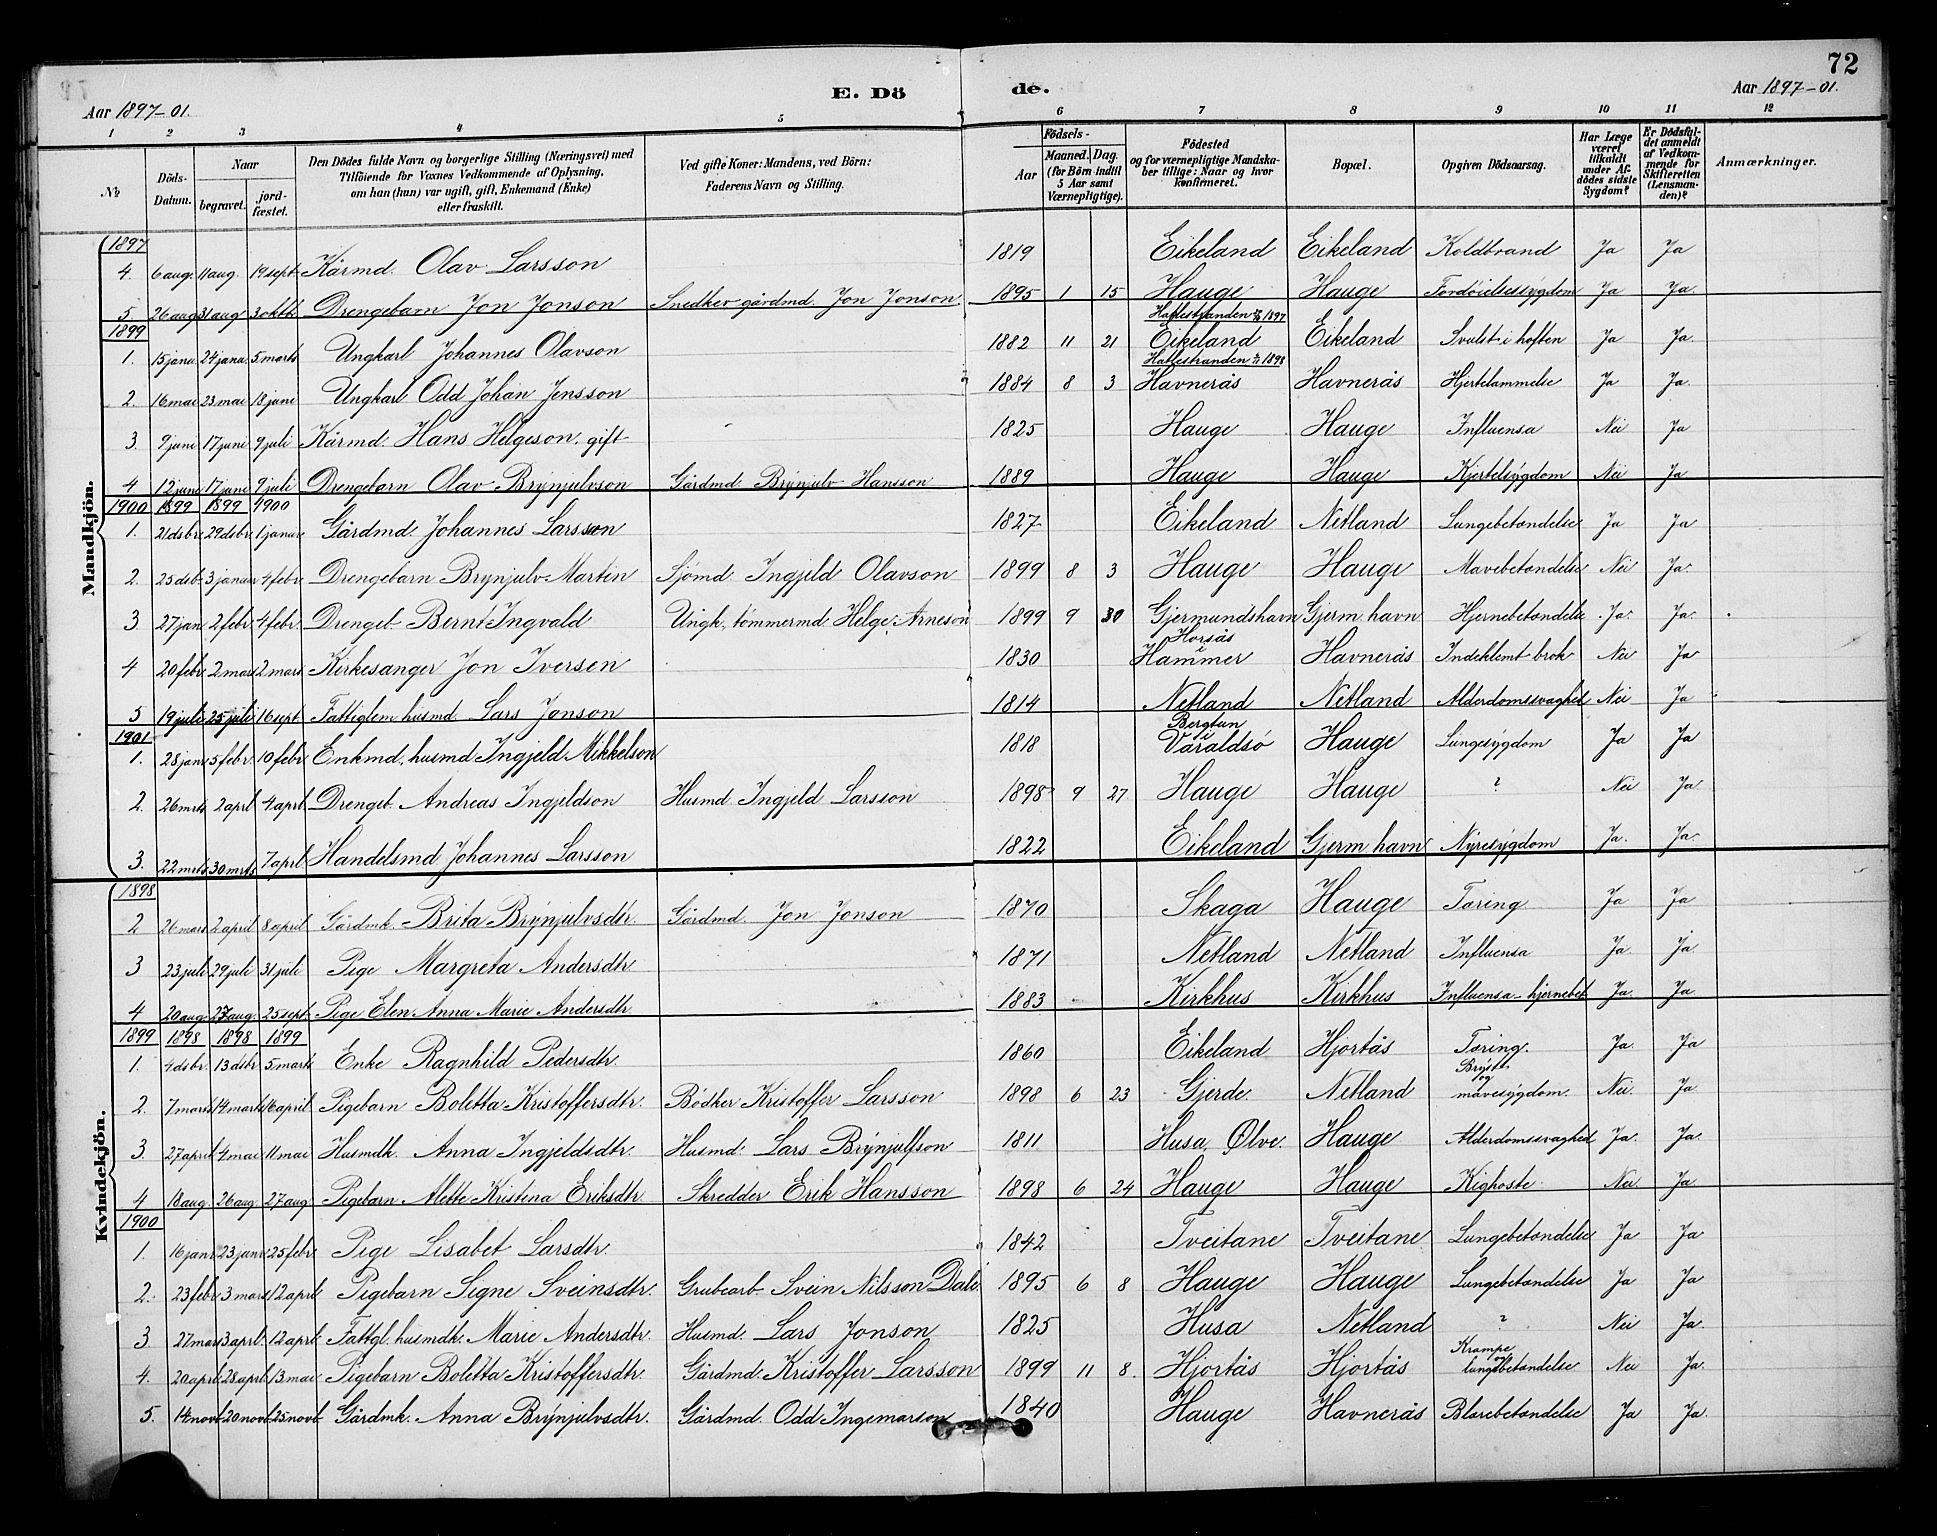 72
Aar 1897-01.
E. Dö
de.
Aar 1897-01.
1 2 3 4 5 6 7 8 9 10 11 12
№ Döds-Datum. Naar begravet. jord-fæstet. Den Dödes fulde Navn og borgerlige Stilling (Næringsvei) med Tilföiende for Voxnes Vedkommende af Oplysning, om han (hun) var ugift, gift, Enkemand (Enke) eller fraskilt. Ved gifte Koner: Mandens, ved Börn: Faderens Navn og Stilling. Födsels- Aar Maaned. Dag. (for Börn indtil 5 Aar samt Værnepligtige). Födested og for værnepligtige Mandska-ber tillige: Naar og hvor konfirmeret. Bopæl. Opgiven Dödsaarsag. Har Læge været tilkaldt under Af-dödes sidste Sygdom? Er Dödsfal-det anmeldt af Vedkom-mende for Skifteretten (Lensman-den)? Anmærkninger.
Mandkjön.
1897
4. 6 aug. 11 aug. 19 sept. Kårmd. Olav Larsson 1819 Eikeland Eikeland Koldbrand Ja Ja
5. 26 aug 31 aug 3 oktb. Drengebarn Jon Jonson Snedker gårdmd. Jon Jonson 1895 1 15 Hauge Hauge Fordøielsessygdom Ja Ja.
1899
Hatlestranden 1897
1. 15 janu 24 janu. 5. marts Ungkarl Johannes Olavson 1882 11 21 Eikeland Eikeland Svulst i hoften Ja Ja.
Hatlestranden 1898
2. 16 mai 23 mai 18 juni Ungkarl Odd Johan Jensson 1884 8 3 Havnerås Havnerås Hjertelammelse Ja Ja.
3. 9 juni 17 juni 9 juli Kårmd. Hans Helgeson, gift 1825 Hauge Hauge Influensa Nei Ja
4 12 juni 17 juni 9 juli Drengebarn Olav Brynjulvson Gårdmd. Brynjulv Hansson 1889 Hauge Hauge Kjertelsygdom Nei Ja
1900 1899 1899 1900
1. 21 dsbr. 29 dsbr. 1 januar Gårdmd. Johannes Larsson 1827 Eikeland Netland Lungebetændelse Ja Ja
2. 25 dsb. 3 januar 4 febr. Drengebarn Brynjulv Martin Sjömd. Ingjeld Olavson 1899 8 3 Hauge Hauge Mavebetændelse Nei Ja.
3 27 jan 2 febr. 4 febr. Drengeb. Bernt Ingvald Ungk, tømmermd Helge Arneson 1899 9 30 Gjermundshavn Gjerm.havn Hjernebetændelse Ja. Ja.
4 20 febr. 2 mars 2 mars Kirkesanger Jon Iversen 1830 Horsås i Hammer Havnerås Indeklemt brok Nei Ja.
5 19 juli 25 juli 16 sept. Fattiglem husmd. Lars Jonson 1814 Netland Netland Alderdomssvaghed Nei Ja
1901
1. 28 janr 5 febr. 10 febr Enkmd, husmd Ingjeld Mikkelson 1818 Bergtun i Varaldsö Hauge Lungesygdom Ja Ja
2. 26 mrts 2 aprl. 4 aprl. Drengeb. Andreas Ingjeldson Husmd Ingjeld Larsson 1898 9 27 Hauge Hauge ? Nei Ja
3. 22 mrts 30 mrts 7 aprl. Handelsmd Johannes Larsson 1822 Eikeland Gjerm.havn Nyresygdom Ja. Ja.
Kvindekjön.
1898
2 26 mars 2 april 8 april Gårdmk. Brita Brynjulvsdtr. Gårdmd. Jon Jonson 1870 Skaga Hauge Tæring Ja Ja
3 23 juli 29 juli 31 juli Pige Margreta Andersdtr 1871 Netland Netland Influensa Ja. Ja.
4 20 aug. 27 aug. 25 sept. Pige Elen Anna Marie Andersdtr 1883 Kirkhus Kirkhus Influensa-hjernebet Ja. Ja
1899 1898 1898 1899
1. 4 dsbr. 13 dsbr. 5. marts Enke Ragnhild Pedersdtr. 1860 Eikeland Hjortås Tæring. Ja. Ja
2. 7 marts 14 marts 16 april Pigebarn Boletta Kristoffersdtr. Bödker Kristoffer Larsson 1898 6 23 Gjerde. Netland Bryst og mavesygdom. Nei. Ja
3. 27 april 4 mai 11 mai Husmdk. Anna Ingjeldsdtr. Husmd. Lars Brynjulfson 1811 Husa, Ølve. Hauge Alderdomssvaghed Ja. Ja.
4 18 aug. 26 aug. 27 aug. Pigebarn Alette Kristina Eriksdtr. Skredder Erik Hansson 1898 6 24 Hauge Hauge Kighoste Nei Ja
1900
1. 16 janr 23 janr 25 febr. Pige Lisabet Larsdtr. 1842 Tveitane Tveitane Lungebetændelse Ja Ja
2. 23 febr 3 mars 12 aprl. Pigebarn Signe Sveinsdtr. Grubearb. Svein Nilsson Dale 1895 6 8 Hauge Hauge Lungebetændelse Ja Ja
3 27 mars 3 aprl. 12 aprl. Fattgl. husmdk. Marie Andersdtr. Husmd. Lars Jonson 1825 Husa Netland ? Nei Ja.
4. 20 aprl. 28 aprl. 13 mai Pigebarn Boletta Kristoffersdtr. Gårdmd. Kristoffer Larsson 1899 11 8. Hjortås Hjortås Krampe og lungebetændelse Nei Ja.
5. 14 novb 20 novb 25 novb Gårdmk. Anna Brynjulvsdtr. Gårdmd. Odd Ingemarson 1840 Hauge Havnerås Blærebetændelse Ja Ja.